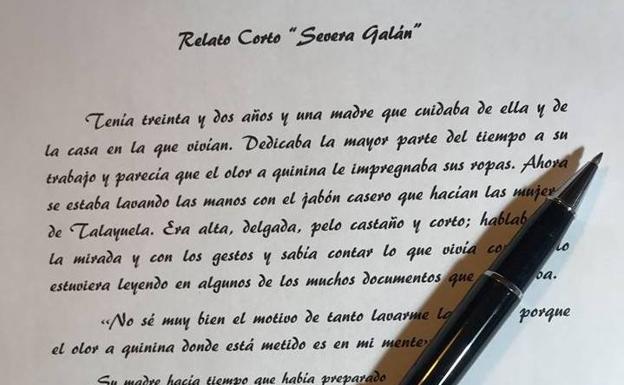 Relato Corto “Severa Galán”
Tenía treinta y dos años y una madre que cuidaba de ella y de
la casa en la que vivían. Dedicaba la mayor parte del tiempo a su
trabajo y parecía que el olor a quinina le impregnaba sus ropas. Ahora
se estaba lavando las manos con el jabón casero que hacían las
de Talayuela. Era alta, delgada, pelo castaño y corto;
la mirada y con los gestos y sabía contar lo que vivía
estuviera leyendo en algunos de los muchos documentos que
«No sé muy bien el motivo de tanto lavarme porque
el olor a quinina donde está metido es en mi
Su madre hacía tiempo que había preparado